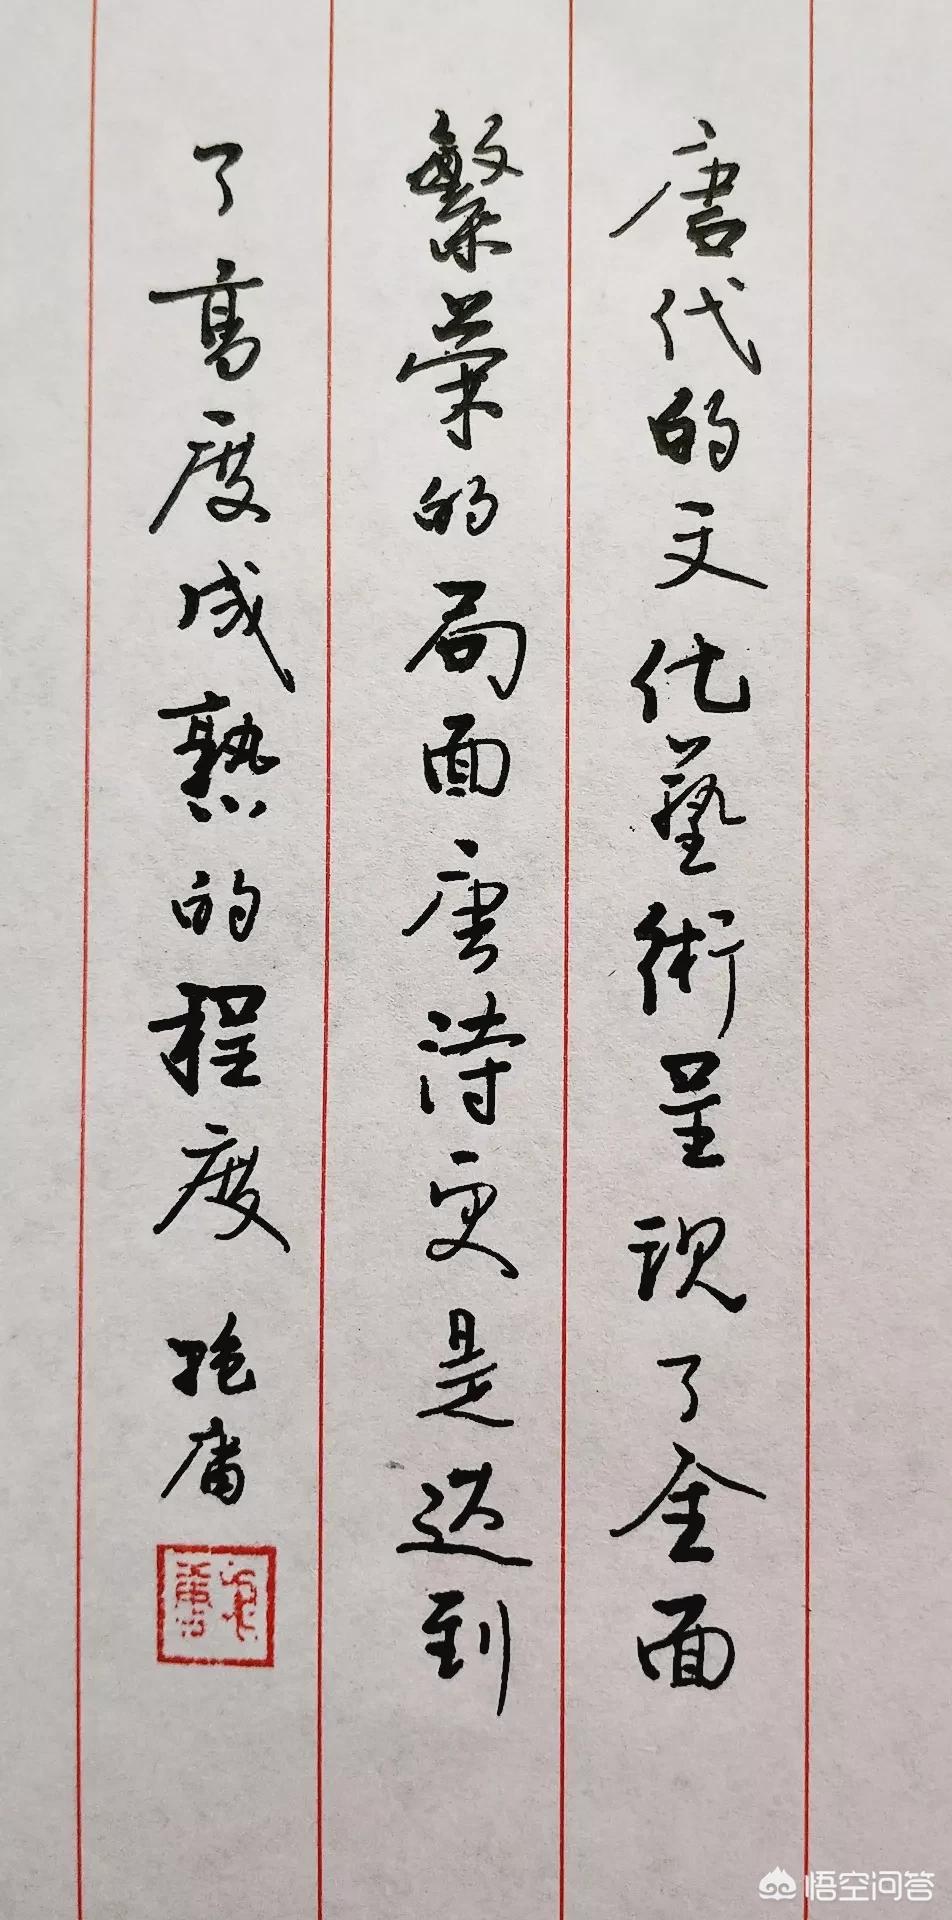 唐代的文化藝術呈现了全面
繁荣的局面唐诗更是达到
了高度成熟的程度 抱庸
悟空问答